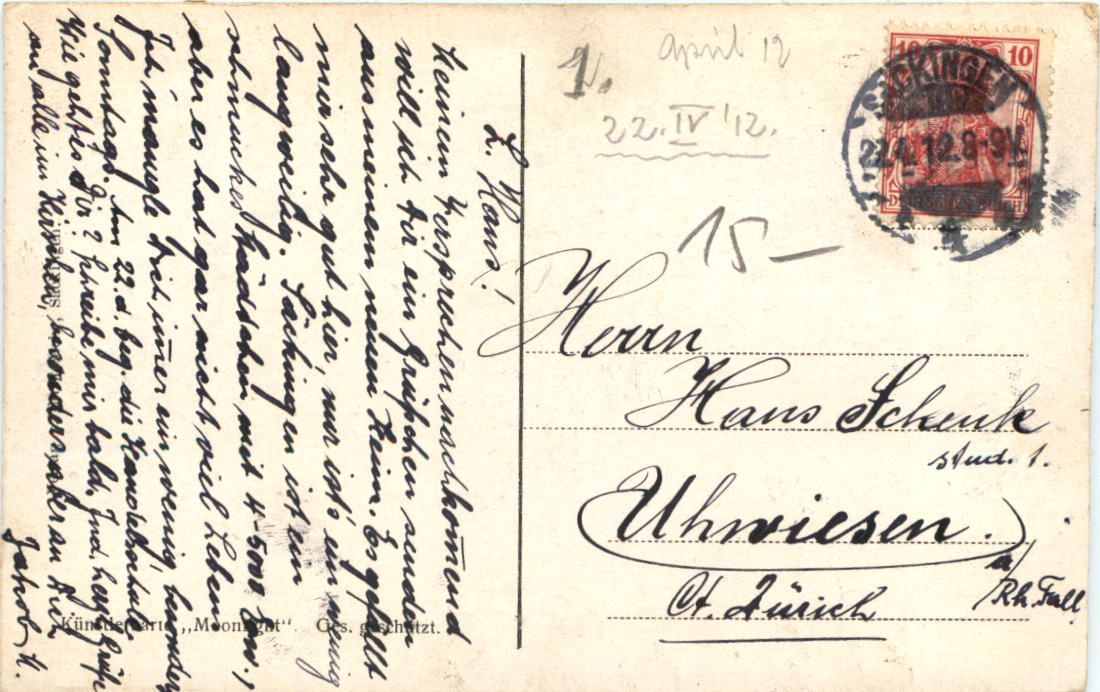 L. Hans!
Meinem Versprechen nachkom̅end
will ich dir ein Grüßchen senden
aus meinem neuen Heim. Es gefällt
mir sehr gut hier, nur ist's ein wenig
langweilig. Säckingen ist ein
schmuckes Städtchen mit 4-5000 Einw.,
aber es hat gar nicht viel Leben
Ich mangle Dich im̅er ein wenig, besonders
Sonntags. Am 22. d beg. die Handelschule
Wie geht es Dir? Schreibe mir bald. Ind. herzl. Grüße
an alle im Hirschen, besonders aber an Dich
Jakob H.
Künstlerkarte „Moonlight". Ges. geschützt.
1.
April 12
22. IV '12.
15 —
10 10
DEUTSCHES REICH
SÄCKINGEN
22.4.12. 8-9V.
Herrn
Hans Schenk
stud. t.
Uhwiesen.
a/Rh. Fall
Ct. Zürich